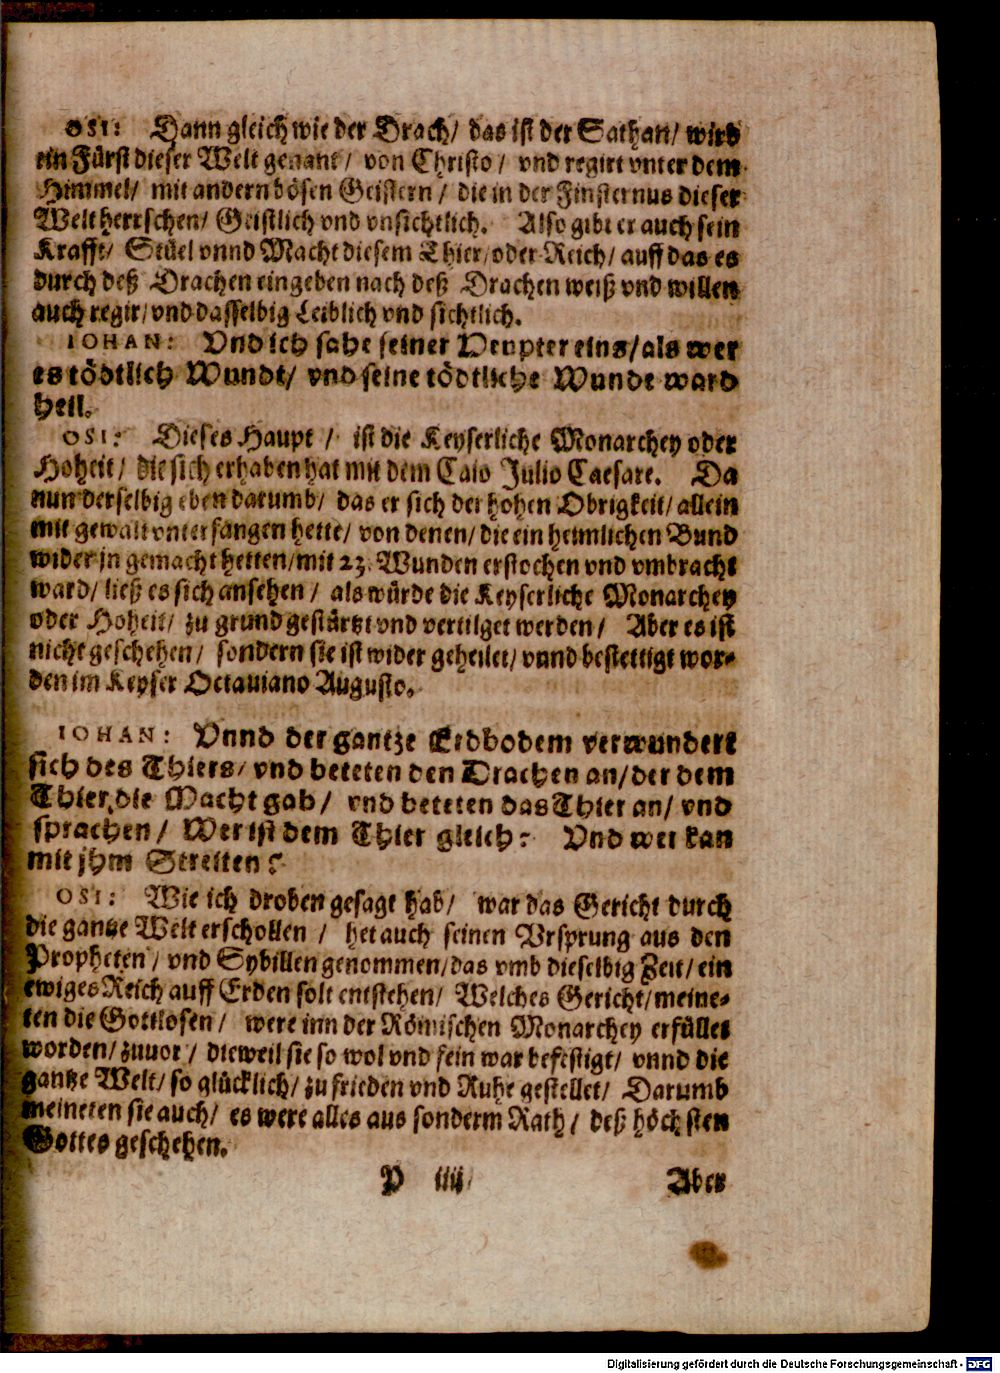 OSI: Dann gleich wie der Drach/ das ist der Sathan/ wird
ein Fürst dieser Welt genant/ von Christo/ vnd regirt vnter dem
Himmel/ mit andern bösen Geistern/ die in der Finsternus dieser
Welt herrschen/ Geistlich vnd vnsichtlich. Also gibt er auch sein
Krafft/ Stüel vnnd Macht diesem Thier/ oder Reich/ auff das es
durch deß Drachen eingeben nach deß Drachen weiß vnd willen
auch regir/ vnd dasselbig Leiblich vnd sichtlich.
IOHAN: Vnd ich sahe seiner Heupter eins/ als wer
es tödtlich Wundt/ vnd seine tödtliche Wunde ward
heil.
OSI: Dieses Haupt/ ist die Keyserliche Monarchey oder
Hoheit/ die sich erhaben hat mit dem Caio Julio Caesare. Da
nun derselbig eben darumb/ das er sich der hohen Obrigkeit/ allein
mit gewalt vnterfangen hette/ von denen/ die ein heimlichen Bund
wider jn gemacht hetten/ mit 23. Wunden erstochen vnd vmbracht
ward/ ließ es sich ansehen/ als würde die Keyserliche Monarchey
oder Hoheit/ zu grund gestürtzt vnd vertilget werden/ Aber es ist
nicht geschehen/ sondern sie ist wider geheilet/ vnnd bestettigt wor-
den im Keyser Octauiano Augusto.
IOHAN: Vnnd der gantze Erdbodem verwundert
sich des Thiers/ vnd beteten den Drachen an/ der dem
Thier die Macht gab/ vnd beteten das Thier an/ vnd
sprachen/ Wer ist dem Thier gleich? Vnd wer kan
mit jhm Streiten?
OSI: Wie ich droben gesagt hab/ war das Gericht durch
die gantze Welt erschollen/ het auch seinen Vrsprung aus den
Propheten/ vnd Sybillen genommen/ das vmb dieselbig Zeit/ ein
ewiges Reich auff Erden solt entstehen/ Welches Gericht/ meine-
ten die Gottlosen/ were inn der Römischen Monarchey erfüllet
worden/ zuuor/ dieweil sie so wol vnd fein war befestigt/ vnnd die
gantze Welt/ so glücklich/ zu frieden vnd Ruhe gestellet/ Darumb
meineten sie auch/ es were alles aus sonderm Rath/ deß höchsten
Gottes geschehen.
P iiij
Aber
Digitalisierung gefördert durch die Deutsche Forschungsgemeinschaft - DFG